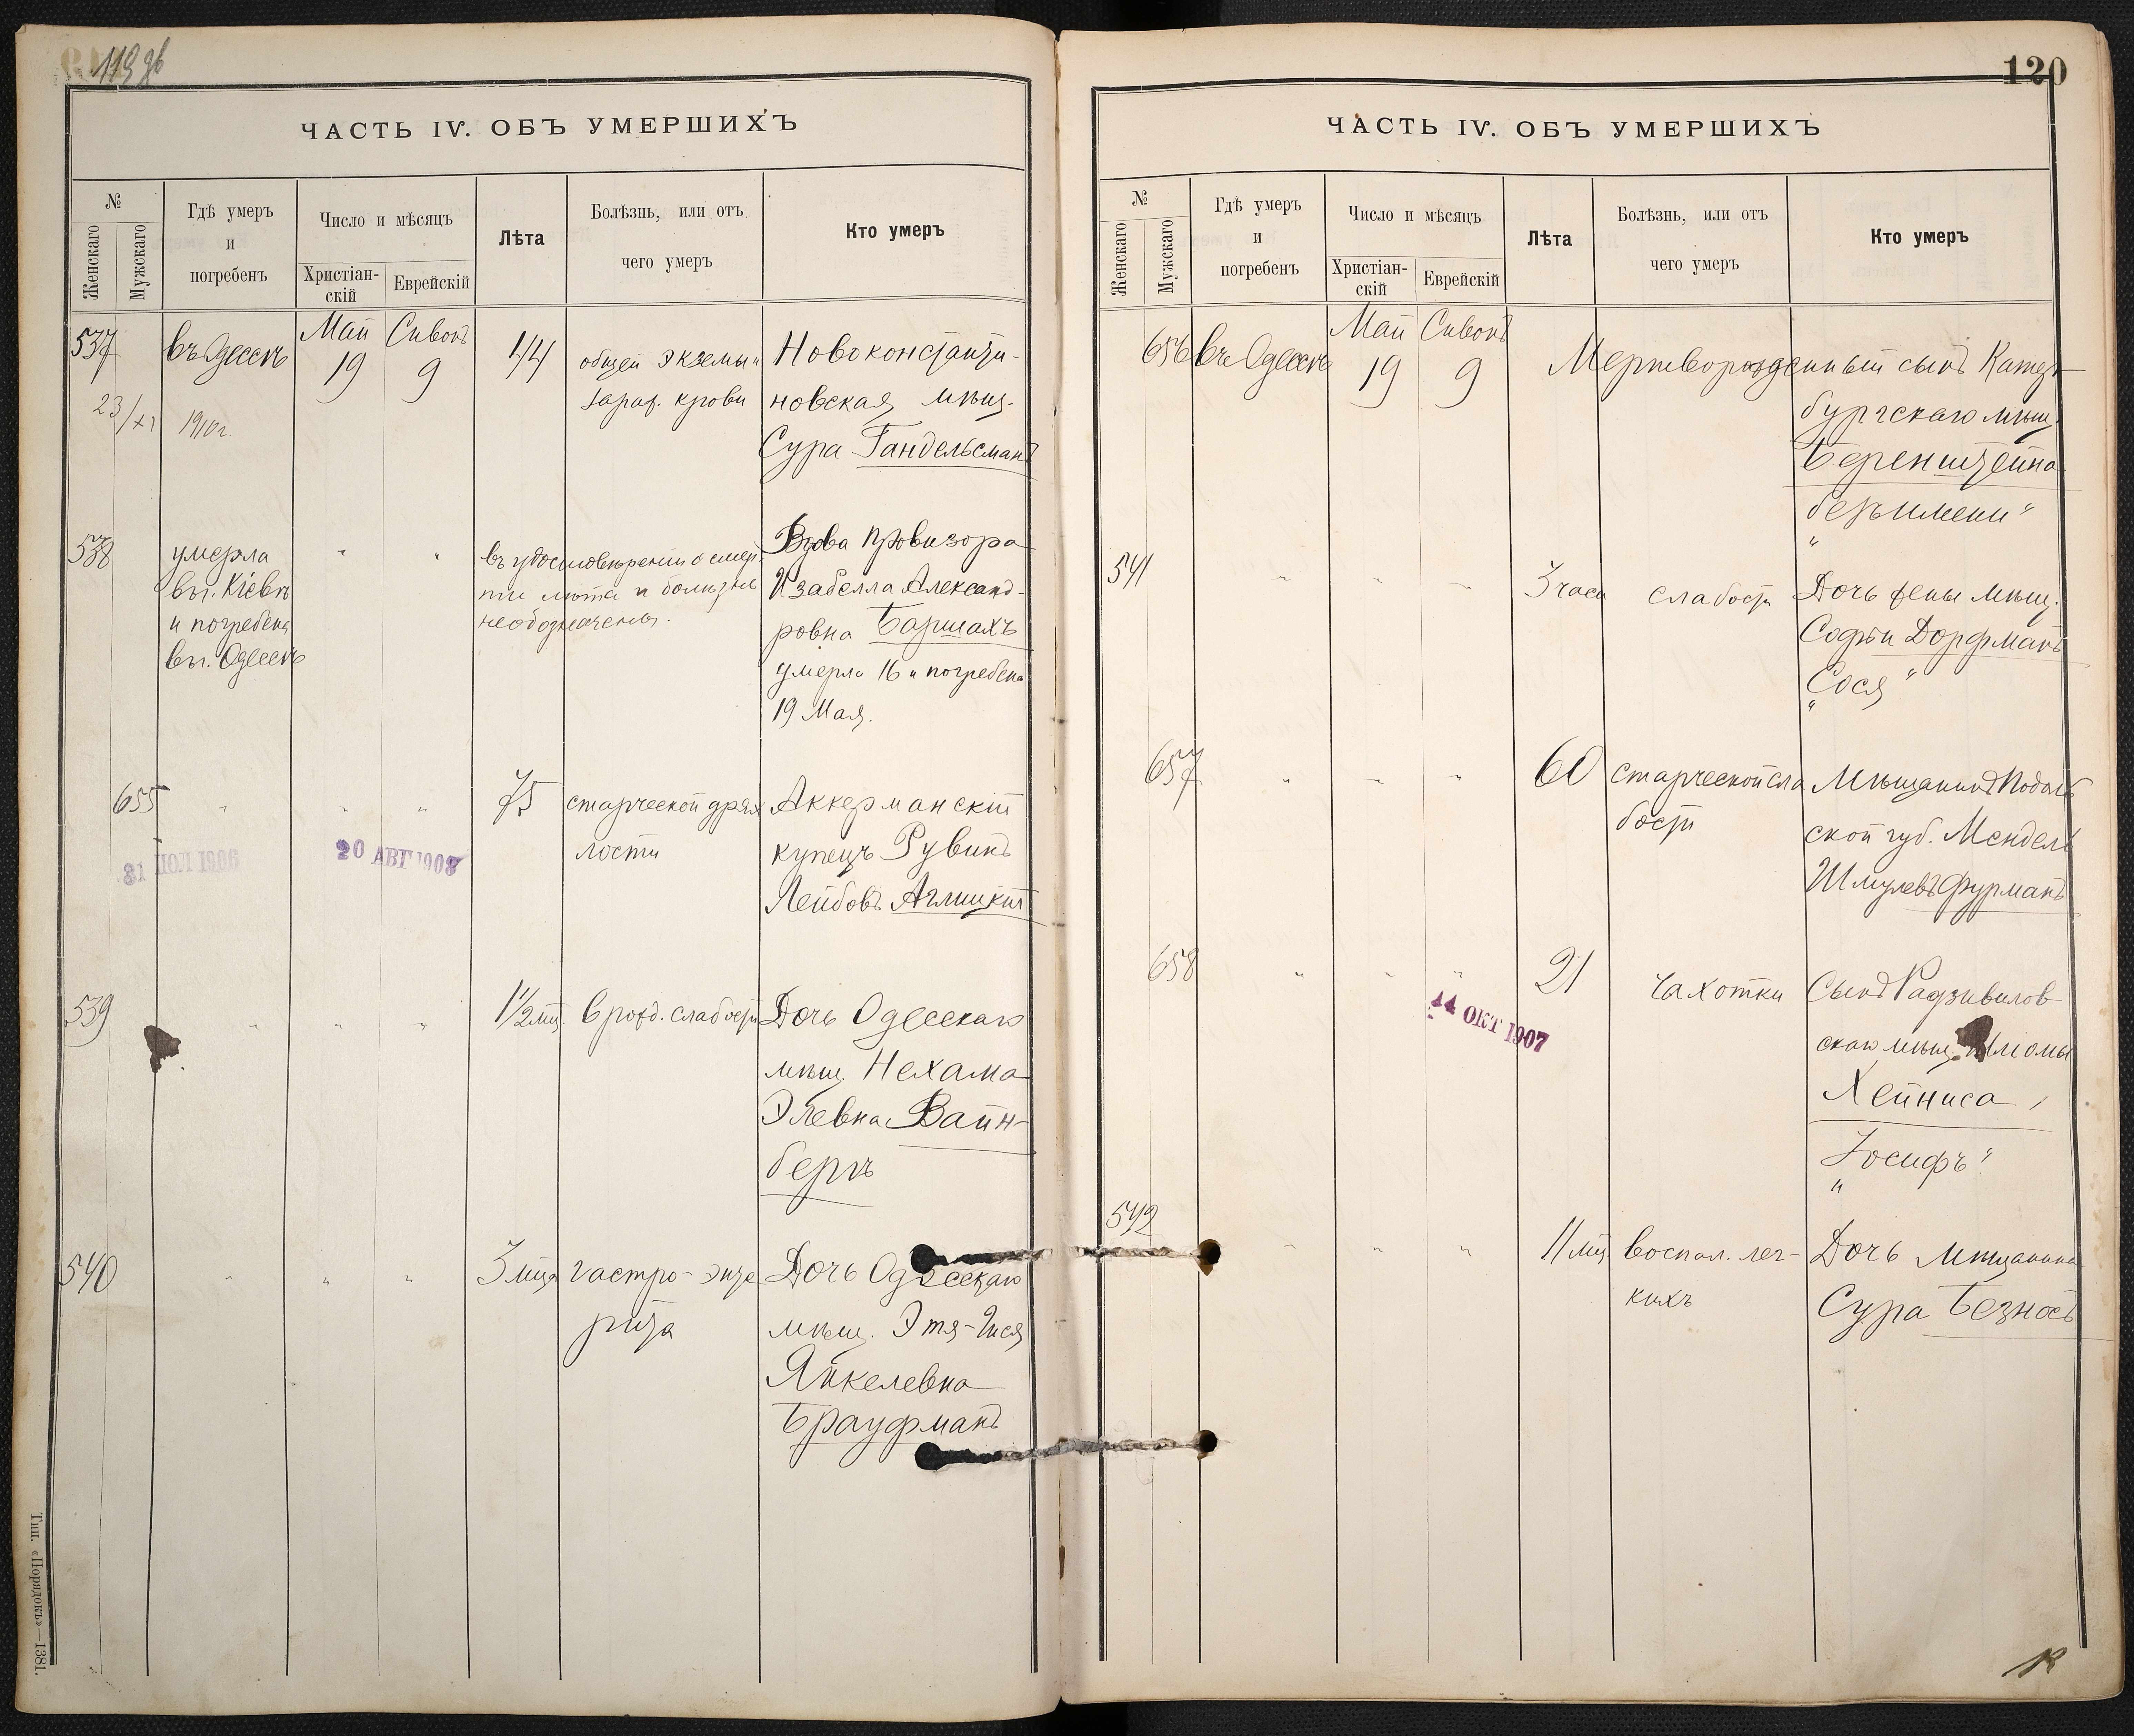 119 об
ЧАСТЬ IV. ОБЪ УМЕРШИХЪ
№
Женскаго
Мужскаго
Гдѣ умеръ
и
погребенъ
Число и мѣсяцъ
Христіан-
скій
Еврейскій
Лѣта
Болѣзнь, или отъ
чего умеръ
Кто умеръ
537
въ Одессѣ
Май
19
Сивонъ
9
44
общей экземы и
зараж. крови
Новоконстанти-
новская мѣщ.
Сура Гандельсманъ
23/XI 1910 г.
538
умерла
въ г. Кіевѣ
и погребена
въ г. Одессѣ
" "
въ удостовѣреніи о смер-
ти лѣта и болѣзнь
необозначены.
Вдова провизора
Изабелла Александ-
ровна Баршахъ
умерла 16 и погребена
19 Мая.
655
" " "
75
старческой дрях
лости
Аккерманскій
купецъ Рувинъ
Лейбовъ Аглицкій
20 АВГ 1908
539
" " "
1 1/2 мѣс.
врожд. слабости
Дочь Одесскаго
мѣщ. Нехама
Элевна Вайн-
бергъ
540
" " "
3 мѣс.
гастро-энте
рита
Дочь Одесскаго
мѣщ. Этя-Ися
Янкелевна
Брауфманъ
Тип. «Порядокъ»—1381.
120
ЧАСТЬ IV. ОБЪ УМЕРШИХЪ
№
Женскаго
Мужскаго
Гдѣ умеръ
и
погребенъ
Число и мѣсяцъ
Христіан-
скій
Еврейскій
Лѣта
Болѣзнь, или отъ
чего умеръ
Кто умеръ
656
въ Одессѣ
Май
19
Сивонъ
9
Мертворожденный сынъ Катер-
бургскаго мѣщ.
Беренштейна
"безъ имени"
541
" " "
3 часа
слабости
Дочь жены мѣщ.
Софьи Дорфманъ
"Сося"
657
" " "
60
старческой сла
бости
Мѣщанинъ Подоль
ской губ. Мендель
Шмулевъ Фурманъ
658
" " "
21
чахотки
Сынъ Радзивилов
скаго мѣщ. Шломы
Хейниса,
"Іосифъ"
14 ОКТ 1907
542
" " "
11 мѣс.
воспал. лег-
кихъ
Дочь мѣщанина
Сура Безносъ